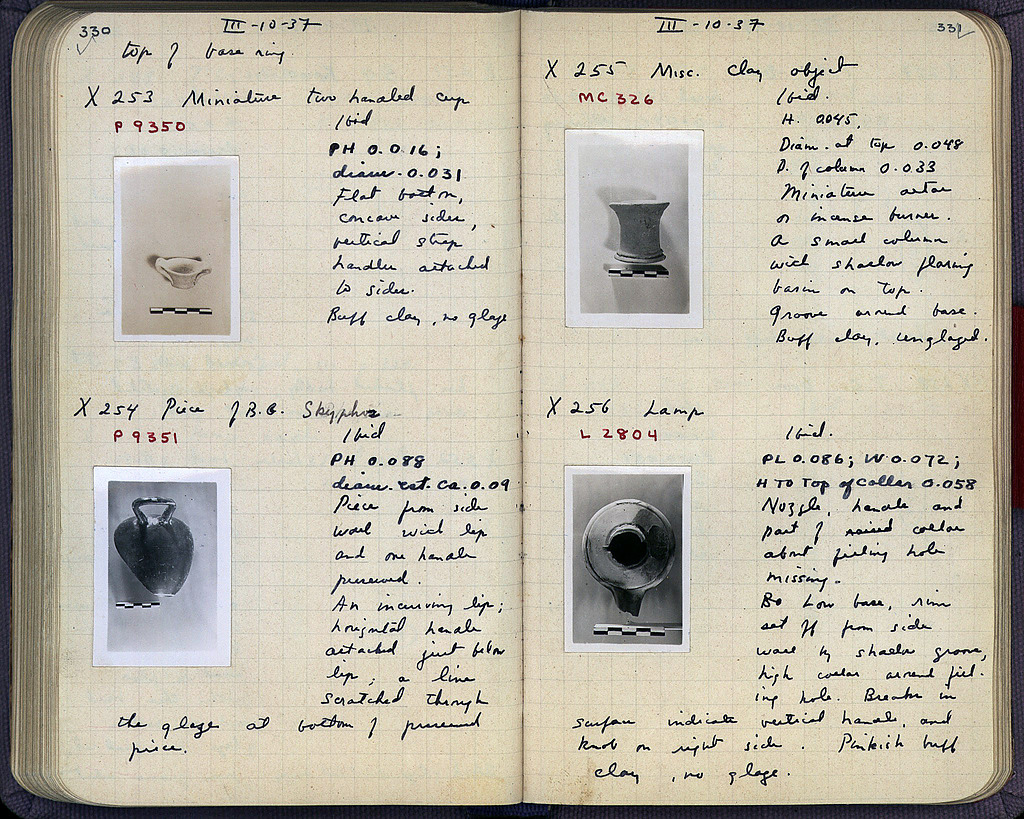 330
III -10-37
top of base ring.
X 253 Miniature two handled cup
P 9350
Ibid
PH 0.016;
diam. 0.031
Flat bottom,
concave sides,
vertical strap
handles attached
to sides.
Buff clay, no glaze
X 254 Piece of B.G. Skyphos
P 9351
Ibid
PH 0.088
diam. est. ca. 0.09
Piece from side
wall with lip
and one handle
preserved.
An incurving lip;
horizontal handle
attached just below
lip; a line
scratched through
the glaze at bottom of preserved
piece.
331
III -10-37
X 255 Misc. clay object
MC 326
Ibid.
H. 0.045,
Diam. at top 0.048
D. of column 0.033
Miniature altar
or incense burner.
A small column
with shallow flaring
basin on top.
Groove around base.
Buff clay, unglazed.
X 256 Lamp
L 2804
Ibid.
PL 0.086; W 0.072;
H TO TOP of collar 0.058
Nozzle, handle and
part of raised collar
about filling hole
missing.
Low base, rim
set off from side
wall by shallow groove,
high collar around fill-
ing hole. Breaks in
surface indicate vertical handle, and
knob on right side. Pinkish buff
clay, no glaze.